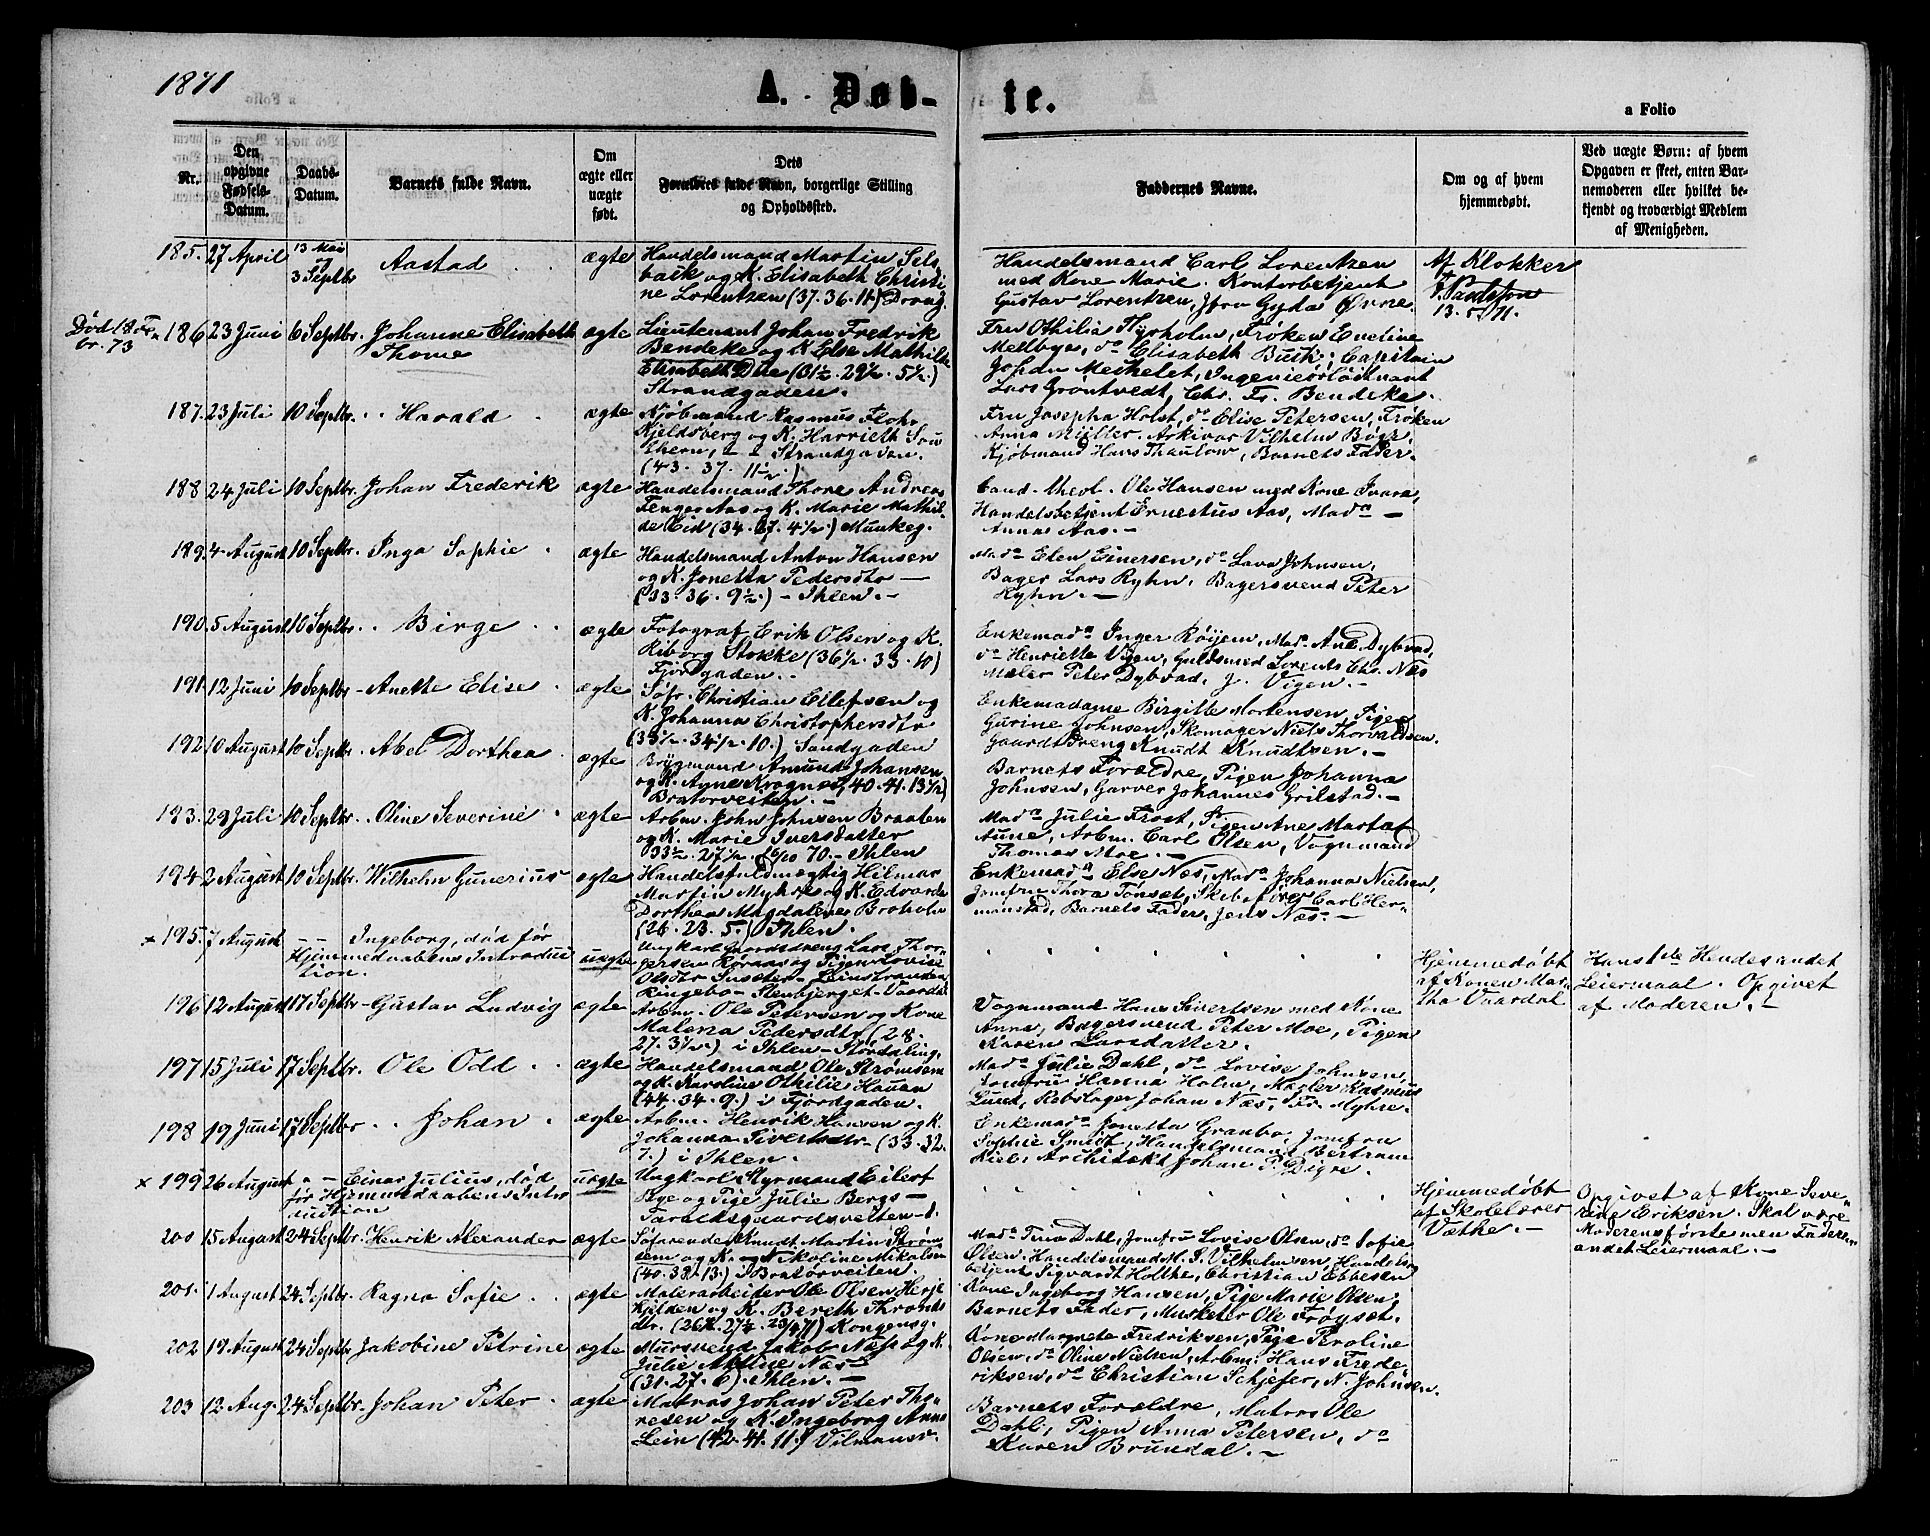 1871
A. Døb-
te.
a Folio
Nr.
Den opgivne Fødsels-Datum.
Daabs-Datum.
Barnets fulde Navn.
Om ægte eller uægte født.
Dets Forældres fulde Navn, borgerlige Stilling og Opholdssted.
Faddernes Navne.
Om og af hvem hjemmedøbt.
Ved uægte Børn: af hvem Opgaven er skeet, enten Barnemoderen eller hvilket bekjendt og troværdigt Medlem af Menigheden.
185. 27 April 13 Mai og 3 Septbr Aastad ægte
Handelsmand Martin Sels
baik og K. Elisabeth Christi
ne Lorentzen (37. 36. 11)
Handelsmand Carl Lorentzen
med Kone Marie. Kontorbetjent
Gustav Lorentzen, Jfru Gyda Ørne.
Af Klokker
13. 5. 71.
Død 18 
br. 73
186 23 Juni 6 Septbr. Johanne Elisabeth ægte
Thome
Lieutenant Johan Fredrik
Bendeke og K Else Mathilde
Elisabeth Due (31½. 29½. 5½)
Strandgaden.
Fru Othilia Thyrholm, Frøken Eveline
Mellbye, do Elisabeth Busk; Capitain
Johan Meihelet, Ingenieörlöitnant
Lars Gröntvedt, Chr. Fr. Bendeke.
187. 23 Juli 10 Septbr. Harald ægte
Kjöbmand Rasmus Flohr
Kjeldsberg og K. Harrieth Sou
thern, Strandgaden.
(43. 37. 11½)
Fru Josepha Holst, do Elise Petersen, Frøken
Anna Müller. Arkivar Vilhelm Böge,
Kjöbmand Hans Thaulow, Barnets Fader.
188 24 Juli 10 Septbr. Johan Frederik ægte
Handelsmand Thore Andreas
Fenger Aas og K. Marie Mathil
de Eid (34. 27. 4½) Munkeg.
Cand. theol. Ole Hansen med Kone Ivara,
Handelsbetjent Ernestus Aas, Mada —
Anna Aas. —
189. 4 August 10 Septbr. Inga Sophie. ægte
Handelsmand Anton Hansen
og K. Jonetta Pedersdtr —
(33. 36. 9½) - Ihlen. —
Mada Elen Einersen, do Lava Johnsen,
Bager Lars Ryhn, Bagersvend Peter
Ryhn. —
190. 5 August 10 Septbr. Birge ægte
Fotograf Erik Olsen og K.
Riborg Stokke (36½. 33. 10)
Fjordgaden. -
Enkemada Inger Röijem, Mada Ane Dybvad,
do Henriette Vigen, Guldsmed Lorents Chr. Næs
Maler Peter Dybvad, J. Vigen. —
191. 12 Juni 10 Septbr. Anette Elise. ægte
Söfr. Christian Ellefsen og
K. Johanna Christophersdtr
(33½. 34½. 10.) Sandgaden
Enkemadame Birgitte Mortensen, Pigen
Gurine Johnsen, Skomager Niels Thorvaldsen.
Gaardtdreng Knudt Knudtsen. —
192 10 August 10 Septr. Abel Dorthea. ægte
Brygmand Amund Johansen
og K. Ane Krognes (40. 41. 13½)
Bratørveiten. -
Barnets Forældre, Pigen Johanna
Johnsen, Garver Johannes Grilstad. —
193. 29 Juli 10 Septbr. Oline Severine. ægte
Arbm. John Johnsen Braaten
og K. Marie Iversdatter
(33½. 27½. 16/10 70. - Ihlen
Mada Julie Frost, Pigen Ane Marta
Aune, Arbm. Carl Olsen, Vognmand
Thomas Moe. —
194 2 August 10 Septbr. Wilhelm Gunerius ægte
Handelsfuldmægtig Hilmar
Martin Myhre og K. Edvarda
Dorthea Magdalene Broholm
(26. 23. 5.) Ihlen.
Enkemada Else Næs, Mada Johanna Nielsen,
Jomfru Thora Tønset, Skibsfører Carl Her-
manstad, Barnets Fader, Jens Næs. —
x 195. 7 August - - Ingeborg, død før uægte
Hjemmedaabens Introduc
tion.
Ungkarl Gaardsdreng Lars Thor
gersen Röraas og Pigen Lovise
Olsdtr Susæter - Leinstranden
Ringebo - Stenbjerget - Vaardal
Hjemmedøbt
af Konen Mar
tha Vaardal
Hans 1ste Hendes andet
Leiermaal. Opgivet
af Moderen. —
196 12 August 17 Septbr. Gustav Ludvig ægte
Arbm. Ole Petersen og Kone
Malena Pedersdtr (28.
27. 3½) i Ihlen - Størdaling.
Vognmand Hans Sivertsen med Kone
Anna, Bagersvend Peter Moe, Pigen
Karen Larsdatter.
197 15 Juli 17 Septbr. Ole Odd. ægte
Handelsmand Ole Strömsem
og K. Karoline Othilie Hauan
(44. 34. 9.) i Fjordgaden.
Mada Julie Dahl, do Lovise Johnsen,
Jomfru Hanna Holm, Mægler Rasmus
Lund, Rebslager Johan Næs, Fr. Myhre.
198 19 Juni 17 Septbr Johan. ægte
Arbm. Henrik Hansen og K.
Johanna Sivertsdtr (33. 32.
7.) i Ihlen. -
Enkemada Jonetta Granbo, Jomfru
Sophie Smidt, Handelsmand Bertram
Kiel, Architekt Johan P. Digre.
x 199 26 August " - Einar Julius, død uægte
før Hjemmedaabens Intro
duction
Ungkarl Styrmand Eilert
Bye og Pige Julie Bergs —
Taraldsgaardsveiten -
Hjemmedøbt
af Skolelærer
Væthe. —
Opgivet af Kone Seve
rine Eriksen. Skal være
Moderens første men Faderens
andet Leiermaal. —
200 15 August 24 Septbr. Henrik Alexander ægte
Söfarende Knudt Martin Ström
sem og K. Nikoline Mikalsen
(40. 38. 13.) i Bratörveiten.
Mada Trina Dahl, Jomfru Lovise Olsen, do Sofie
Olsen. Handelsmand M. P. Vilhelmsen, Handels
betjent Sigvardt Holthe, Christian Ebbesen
201. 1 August 24 Septbr. Ragna Sofie. ægte
Malerarbeider Ole Olsen Herje
Kjelden og K. Bereth Thronds
dtr. (26¾. 27½. 23/4 71) Kongensg.
Kone Ingeborg Hansen, Pige Marie Olsen,
Barnets Fader, Musketer Ole Frøyset.
202 19 August 24 Septbr Jakobine Petrine ægte
Mursvend Jakob Næss og K.
Julie Næs
(31. 27. 6) Ihlen. —
Kone Margrete Fredriksen, Pige Peroline
Olsen, do Oline Nielsen, Arbm. Hans Frede
riksen, do Christian Schjefer, N. Johnsen.
203 12 Aug. 24 Septbr. Johan Peter. ægte
Matros Johan Peter The
resen og K. Ingeborg Anna
Lein (42. 41. 11.) Vilmansv.
Barnets Forældre, Matros Ole
Dahl, Pigen Anna Petersen, do
Karen Brundal. —